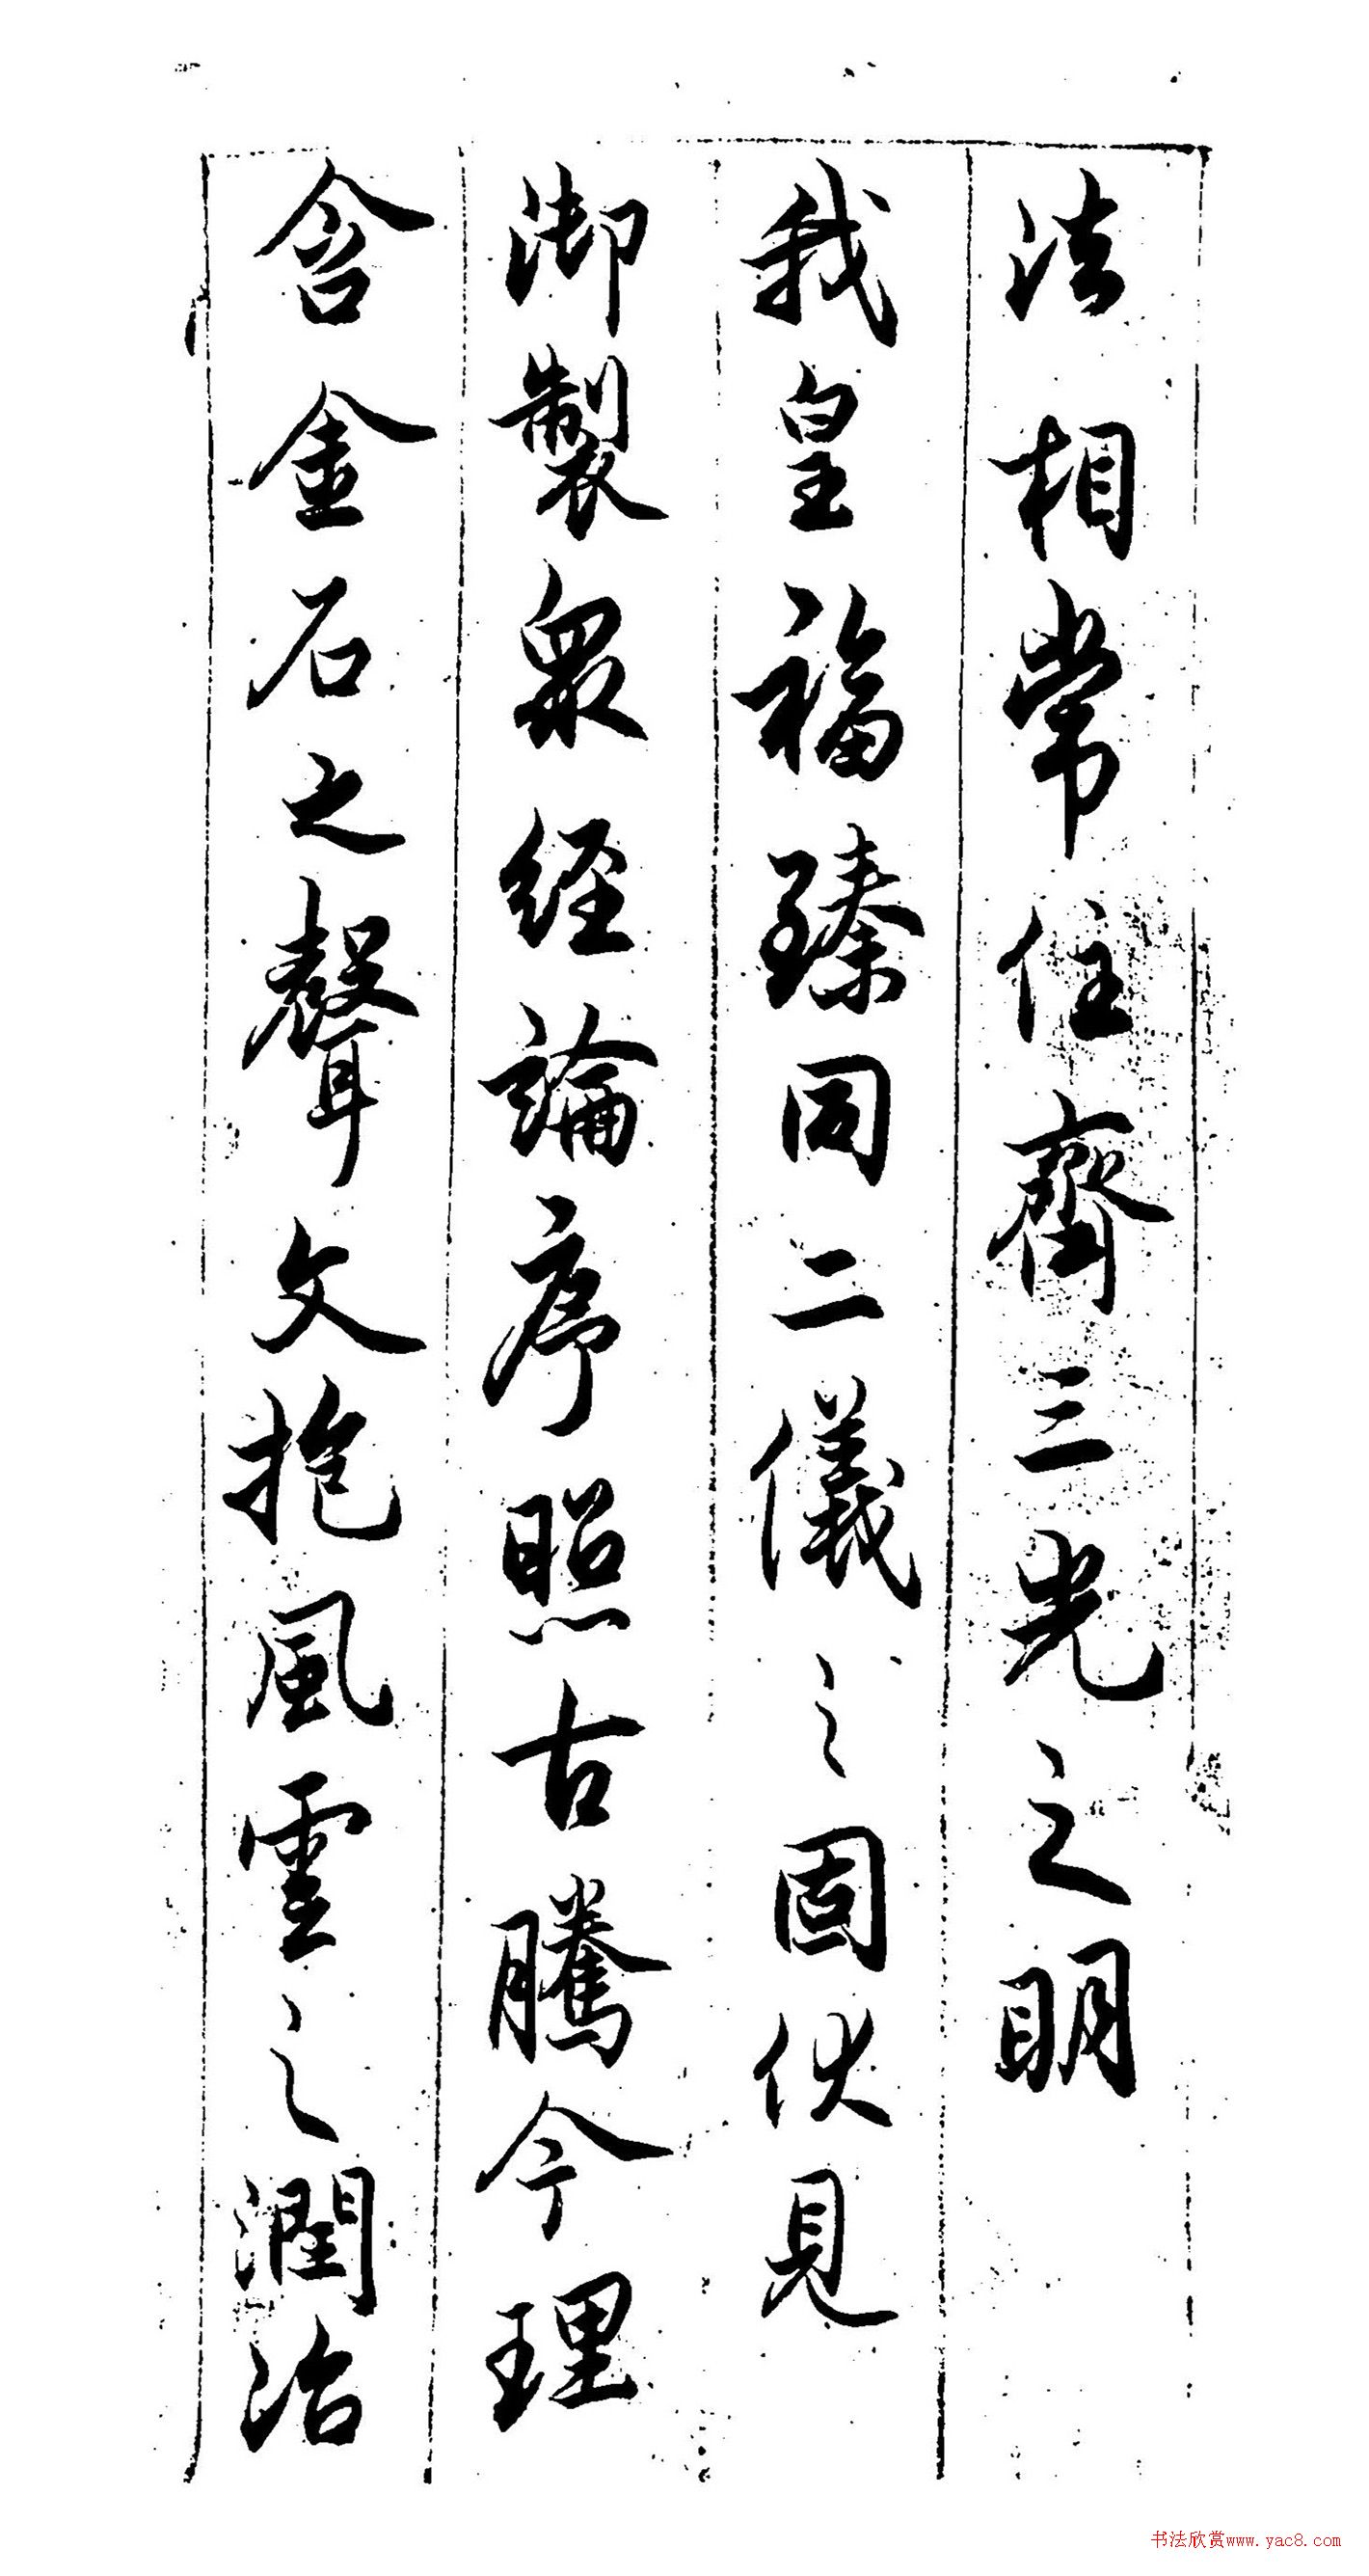 法相常住齊三光之明
我皇福臻同二儀之固伏見
御製眾经論序照古騰今理
含金石之聲文抱風雲之潤治
书法欣赏www.yac8.com